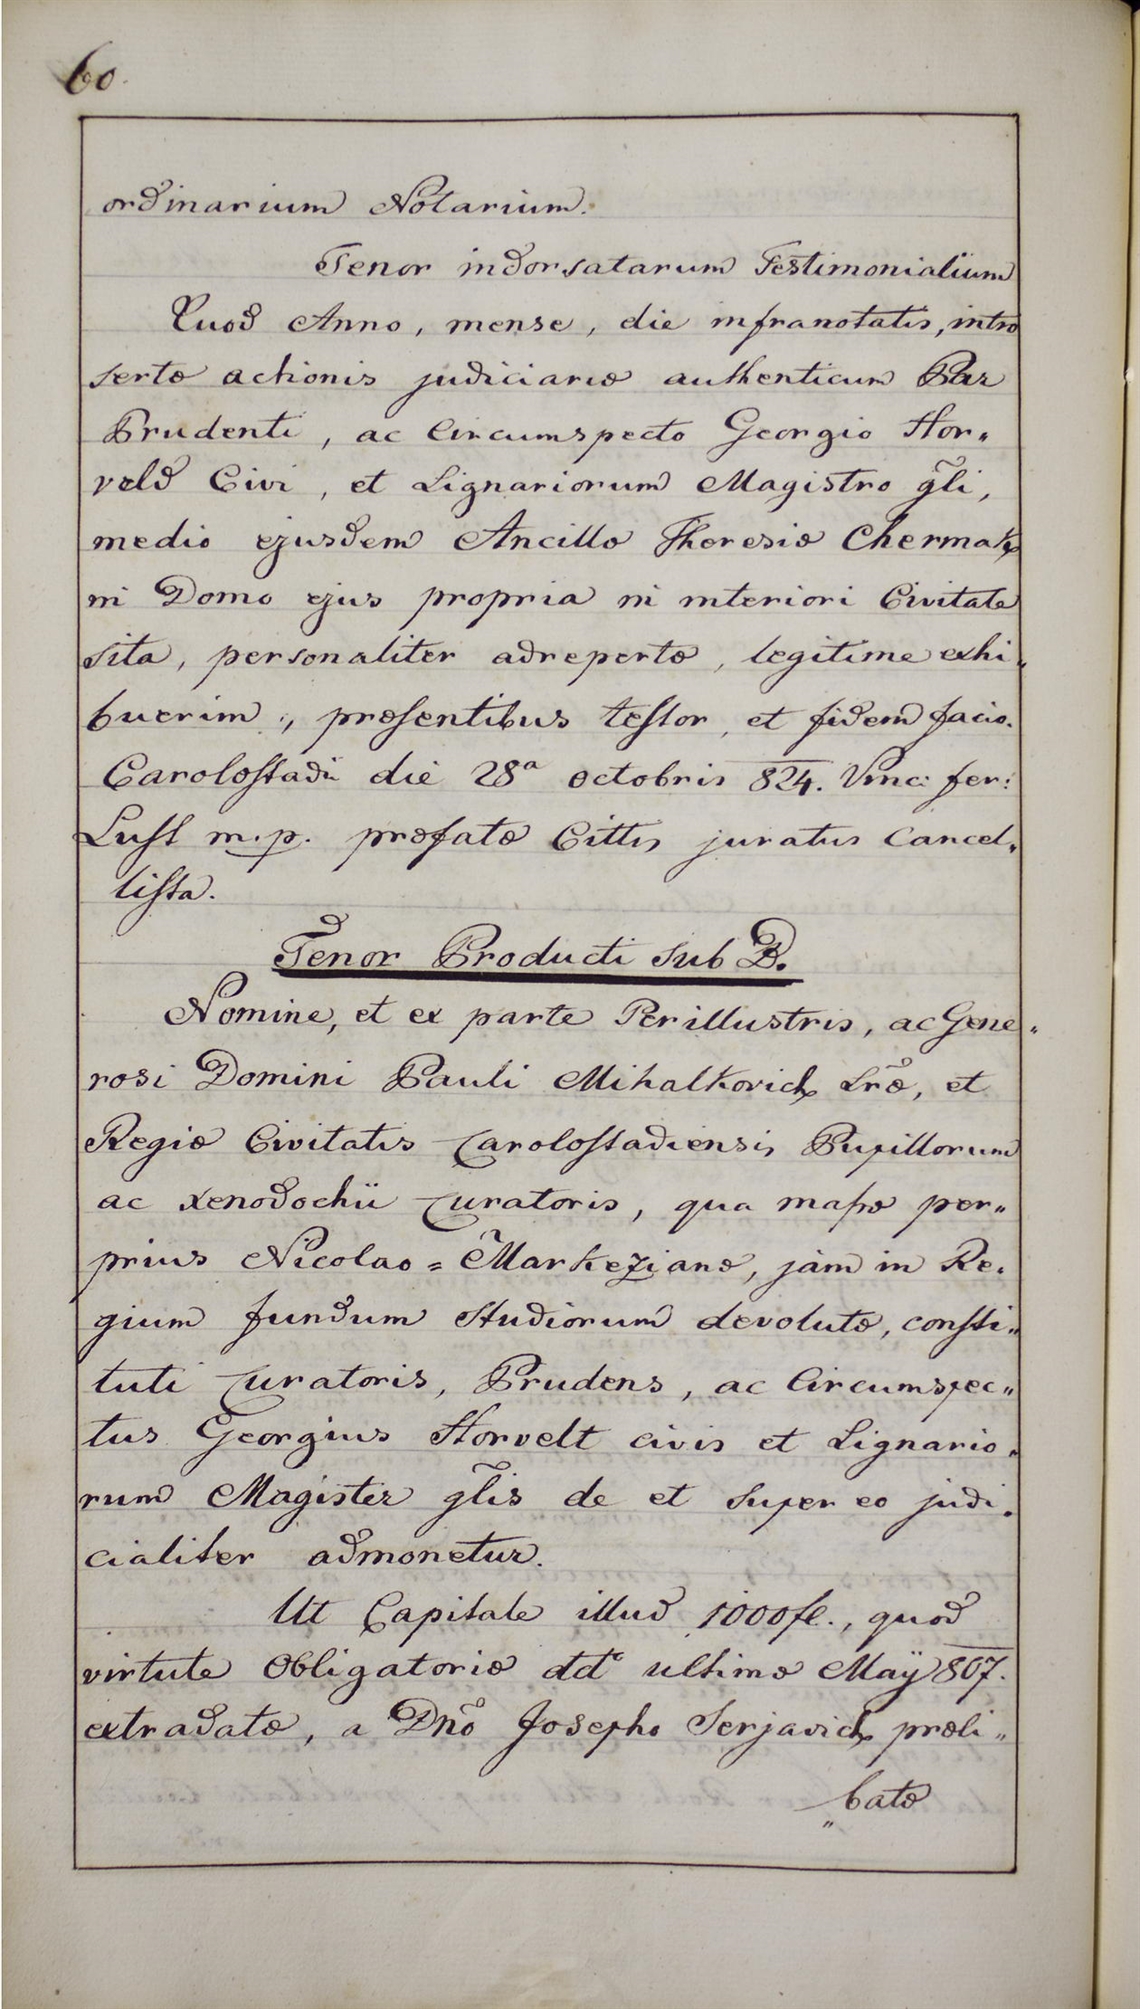 60.
ordinarium Notarium.
Tenor indorsatarum Testimonialium
Quod Anno, mense, die infranotatis, intro
sertæ actionis judiciariæ authenticum Par
Prudenti, ac Circumspecto Georgio Hor„
veld Civi, et Lignariorum Magistro gl̃i,
medio ejusdem Ancillæ Theresiæ Chermak
in Domo ejus propria in interiori Civitate
sita, personaliter adrepertæ, legitime exhi„
buerim, præsentibus testor, et fidem facio.
Carolostadii die 28ª octobris 824. Vinc: fer:
Lust m.p. præfatæ Cittis juratus Cancel„
lista.
Tenor Producti sub D.
Nomine, et ex parte Perillustris, ac Gene„
rosi Domini Pauli Mihalkovich Lr̃æ, et
Regiæ Civitatis Carolostadiensis Pupillorum
ac Xenodochii Curatoris, qua massæ per„
prius Nicolao=Markezianæ, jam in Re„
gium fundum Studiorum devolutæ, consti„
tuti Curatoris, Prudens, ac Circumspec„
tus Georgius Horvelt civis et Lignario„
rum Magister gl̃is de et super eo judi„
cialiter admonetur.
Ut Capitale illud 1000 fl., quod
virtute Obligatoriæ ddᵒ ultima Maÿ 807.
extradatæ, a Dnõ Josepho Serjavich præli„
„batæ